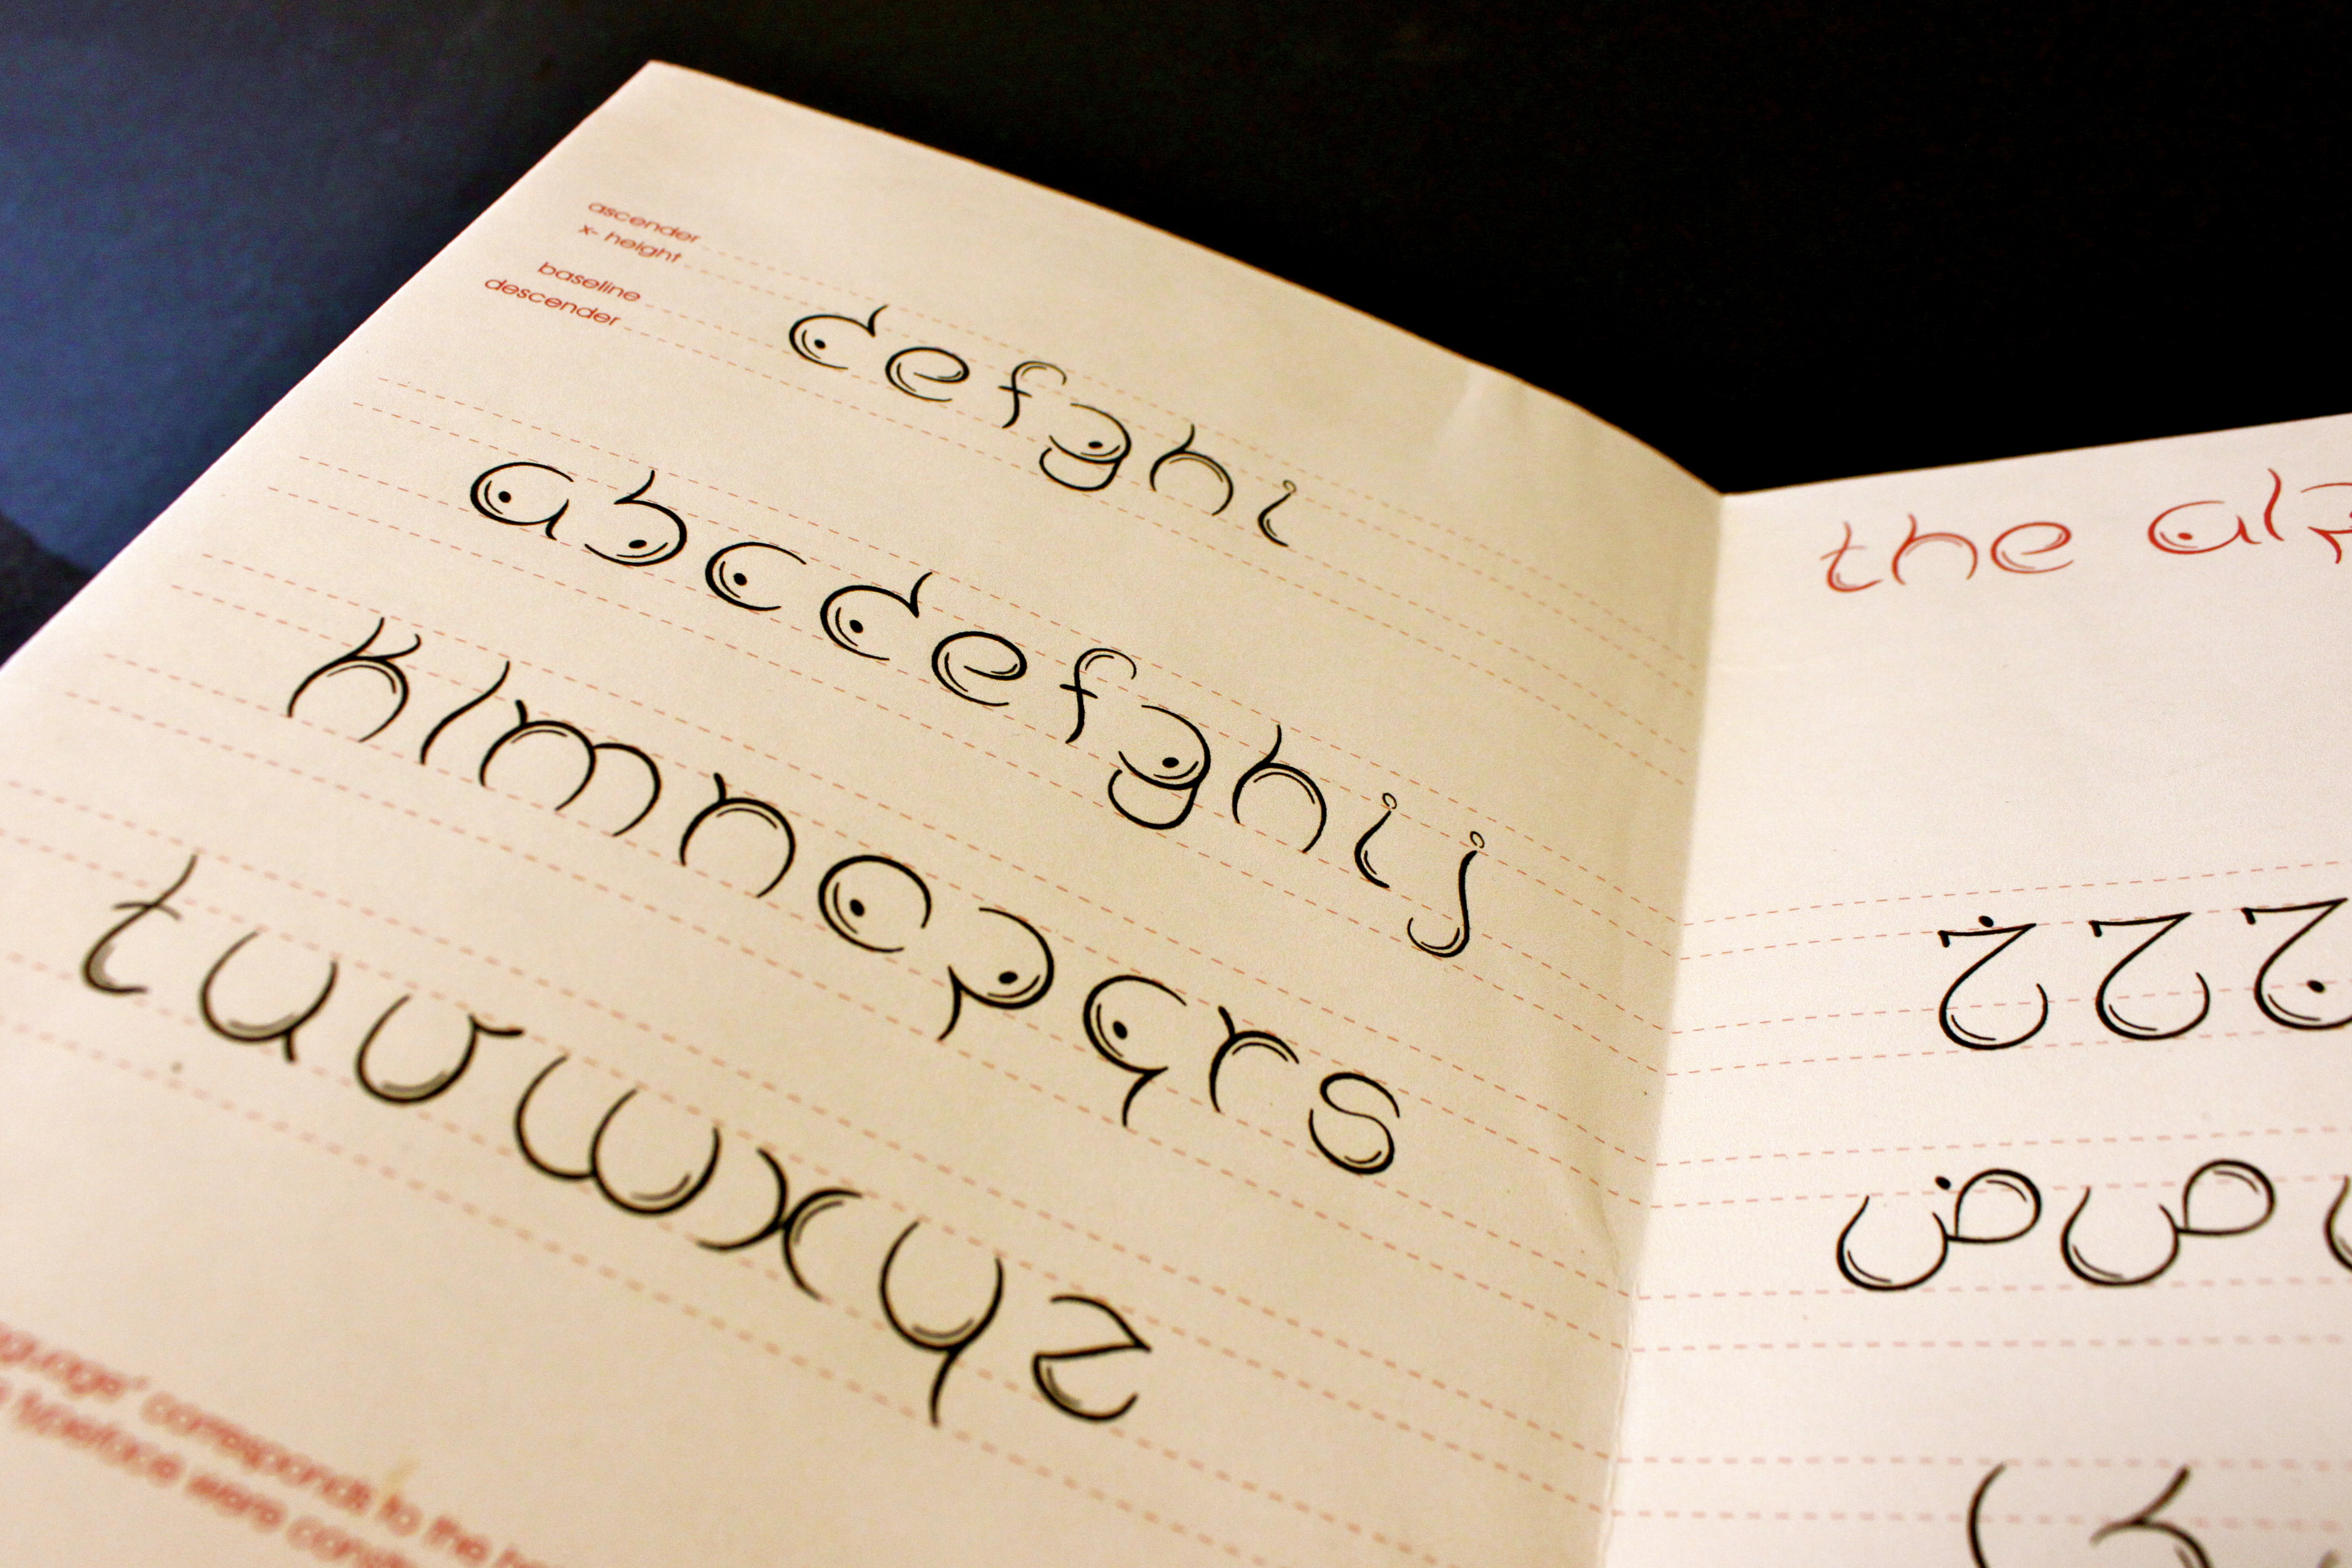 ascender
x- height
baseline
descender
defghi
abcdefghij
klmnopqrs
tuvwxyz
corresponds to the
typeface were
the
ج ح خ
ص ض